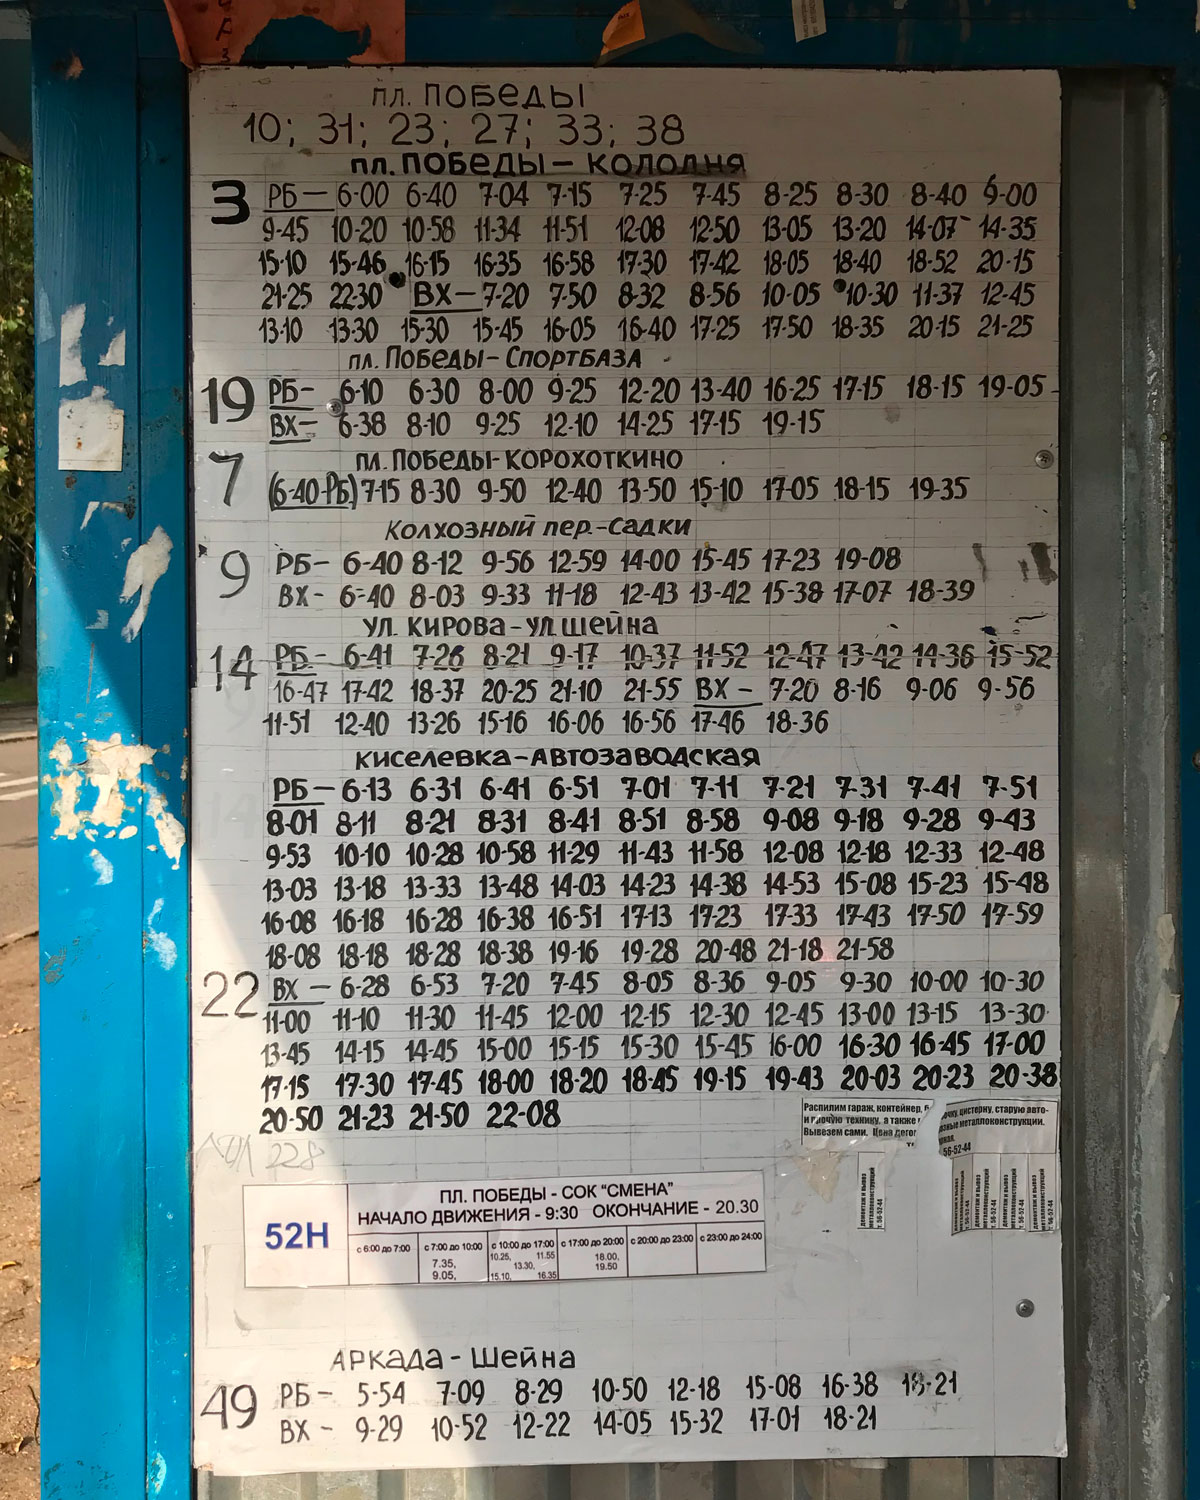 пл. Победы
10; 31; 23; 27; 33; 38
пл. Победы – Колодня
3 РБ – 6-00 6-40 7-04 7-15 7-25 7-45 8-25 8-30 8-40 9-00
9-45 10-20 10-58 11-34 11-51 12-08 12-50 13-05 13-20 14-07 14-35
15-10 15-46 16-15 16-35 16-58 17-30 17-42 18-05 18-40 18-52 20-15
21-25 22-30 ВХ – 7-20 7-50 8-32 8-56 10-05 10-30 11-37 12-45
13-10 13-30 15-30 15-45 16-05 16-40 17-25 17-50 18-35 20-15 21-25
пл. Победы – Спортбаза
19 РБ – 6-10 6-30 8-00 9-25 12-20 13-40 16-25 17-15 18-15 19-05
ВХ – 6-38 8-10 9-25 12-10 14-25 17-15 19-15
пл. Победы-Корохоткино
7 (6-40-РБ) 7-15 8-30 9-50 12-40 13-50 15-10 17-05 18-15 19-35
Колхозный пер.-Садки
9 РБ – 6-40 8-12 9-56 12-59 14-00 15-45 17-23 19-08
ВХ - 6-40 8-03 9-33 11-18 12-43 13-42 15-38 17-07 18-39
ул. Кирова – ул Шейна
14 РБ – 6-41 7-26 8-21 9-17 10-37 11-52 12-47 13-42 14-36 15-52
16-47 17-42 18-37 20-25 21-10 21-55 ВХ – 7-20 8-16 9-06 9-56
11-51 12-40 13-26 15-16 16-06 16-56 17-46 18-36
Киселевка – Автозаводская
РБ – 6-13 6-31 6-41 6-51 7-01 7-11 7-21 7-31 7-41 7-51
8-01 8-11 8-21 8-31 8-41 8-51 8-58 9-08 9-18 9-28 9-43
9-53 10-10 10-28 10-58 11-29 11-43 11-58 12-08 12-18 12-33 12-48
13-03 13-18 13-33 13-48 14-03 14-23 14-38 14-53 15-08 15-23 15-48
16-08 16-18 16-28 16-38 16-51 17-13 17-23 17-33 17-43 17-50 17-59
18-08 18-18 18-28 18-38 19-16 19-28 20-48 21-18 21-58
22 ВХ – 6-28 6-53 7-20 7-45 8-05 8-36 9-05 9-30 10-00 10-30
11-00 11-10 11-30 11-45 12-00 12-15 12-30 12-45 13-00 13-15 13-30
13-45 14-15 14-45 15-00 15-15 15-30 15-45 16-00 16-30 16-45 17-00
17-15 17-30 17-45 18-00 18-20 18-45 19-15 19-43 20-03 20-23 20-38
20-50 21-23 21-50 22-08
Распилим гараж, контейнер,
и прочую технику, а также
Вывезем сами. Цена
цистерну, старую авто-
металлоконструкции.
56-52-44
228
демонтаж и вывоз металлоконструкций т. 56-52-44
демонтаж и вывоз металлоконструкций т. 56-52-44
демонтаж и вывоз металлоконструкций т. 56-52-44
демонтаж и вывоз металлоконструкций т. 56-52-44
демонтаж и вывоз металлоконструкций т. 56-52-44
52Н
ПЛ. ПОБЕДЫ - СОК "СМЕНА"
НАЧАЛО ДВИЖЕНИЯ - 9:30 ОКОНЧАНИЕ - 20.30
с 6:00 до 7:00 с 7:00 до 10:00 с 10:00 до 17:00 с 17:00 до 20:00 с 20:00 до 23:00 с 23:00 до 24:00
7.35, 10.25, 11.55 18.00,
9.05, 13.30, 19.50
15.10, 16.35
Аркада – Шейна
49 РБ – 5-54 7-09 8-29 10-50 12-18 15-08 16-38 18-21
ВХ – 9-29 10-52 12-22 14-05 15-32 17-01 18-21